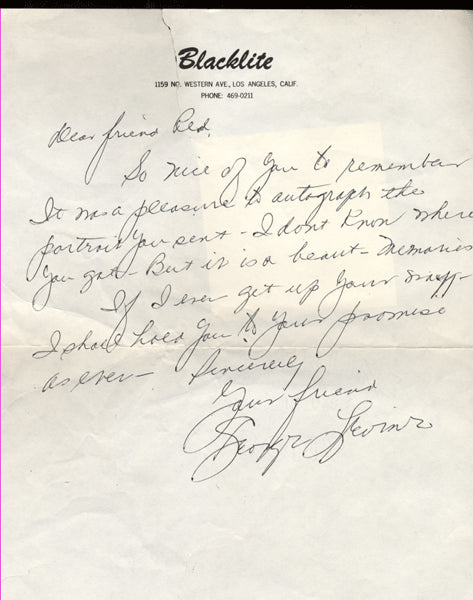 Blacklite
1159 NO. WESTERN AVE., LOS ANGELES, CALIF.
PHONE: 469-0211
Dear friend Red,
So nice of you to remember
It was a pleasure to autograph the
portrait you sent - I dont know where
you got - But it is a beaut - memories
If I ever get up your way -
I shall hold you to your promise
as ever - Sincerely
Your friend
George